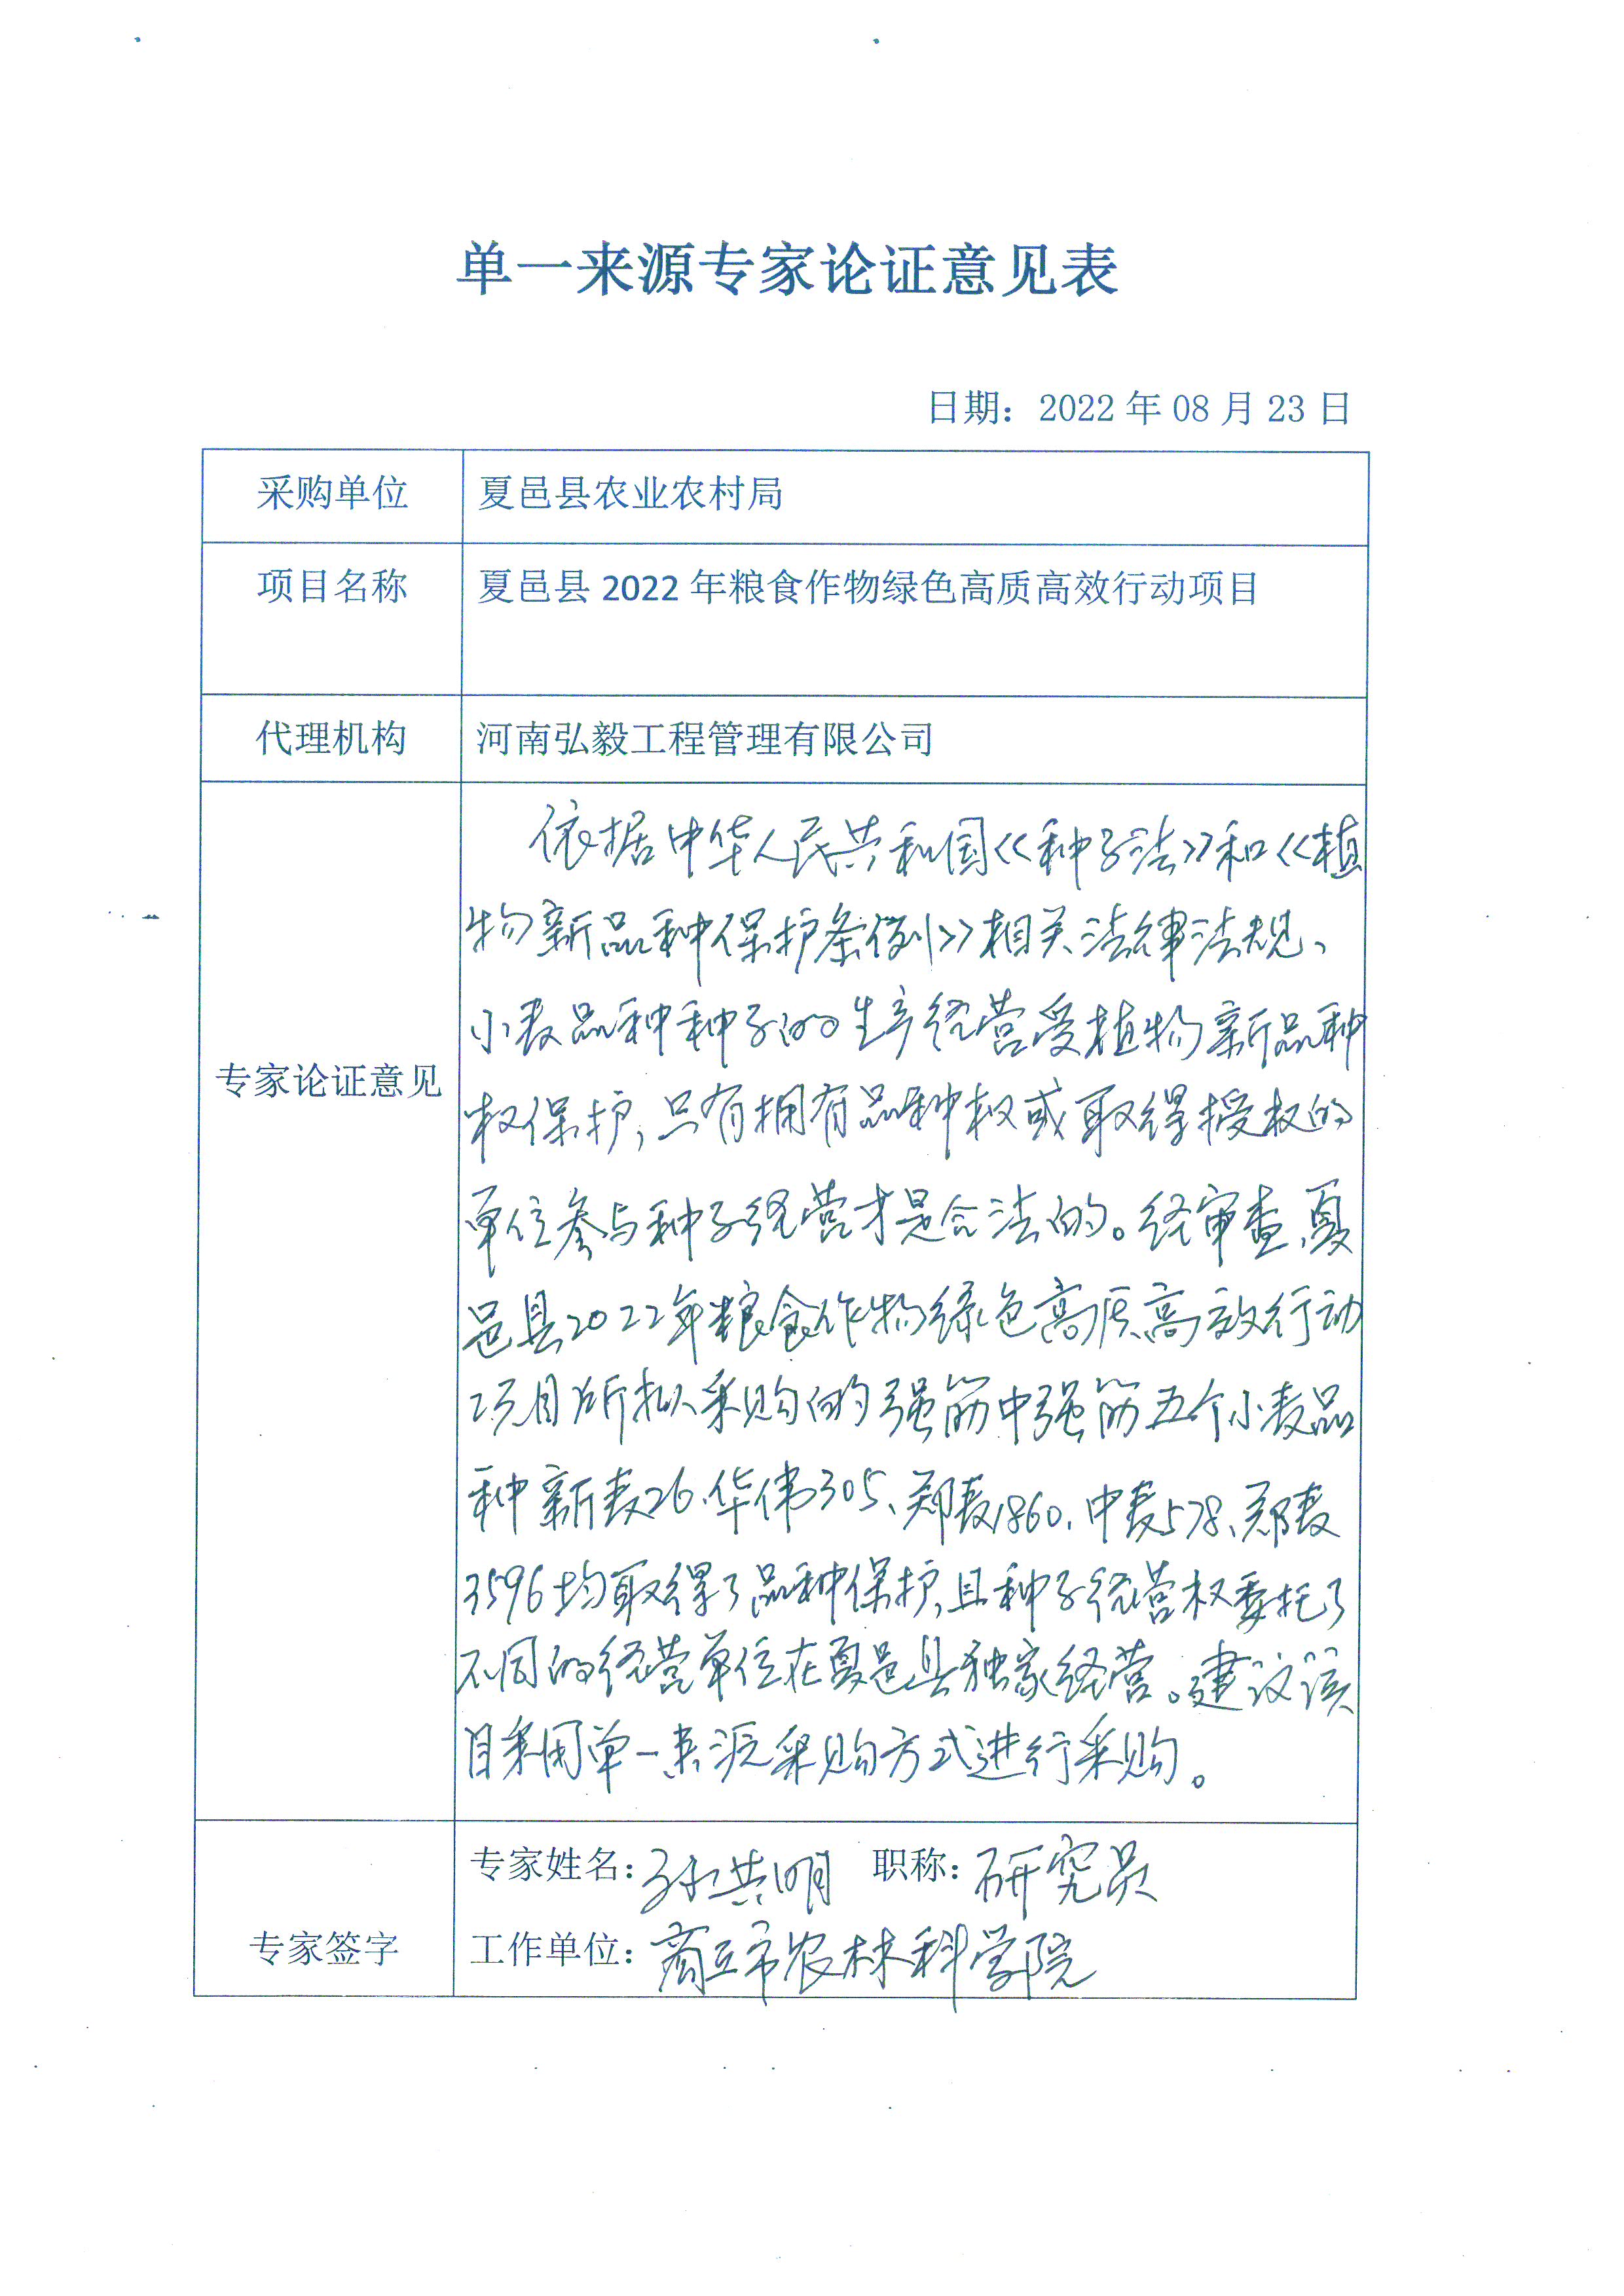 单一来源专家论证意见表
日期：2022 年 08 月 23 日
采购单位
夏邑县农业农村局
项目名称
夏邑县 2022 年粮食作物绿色高质高效行动项目
代理机构
河南弘毅工程管理有限公司
专家论证意见
依据中华人民共和国《种子法》和《植
物新品种保护条例》相关法律法规、
小麦品种种子的生产经营受植物新品种
权保护，只有拥有品种权或取得授权的
单位参与种子经营才是合法的。经审查、夏
邑县2022年粮食作物绿色高质高效行动
项目所拟采购的强筋中强筋五个小麦品
种新麦26、华伟305、郑麦1860、中麦578、郑麦
3596均取得了品种保护，且种子经营权委托了
不同的经营单位在夏邑县独家经营。建议该
目采用单一来源采购方式进行采购。
专家签字
专家姓名：孙共明 职称：研究员
工作单位：商丘市农林科学院